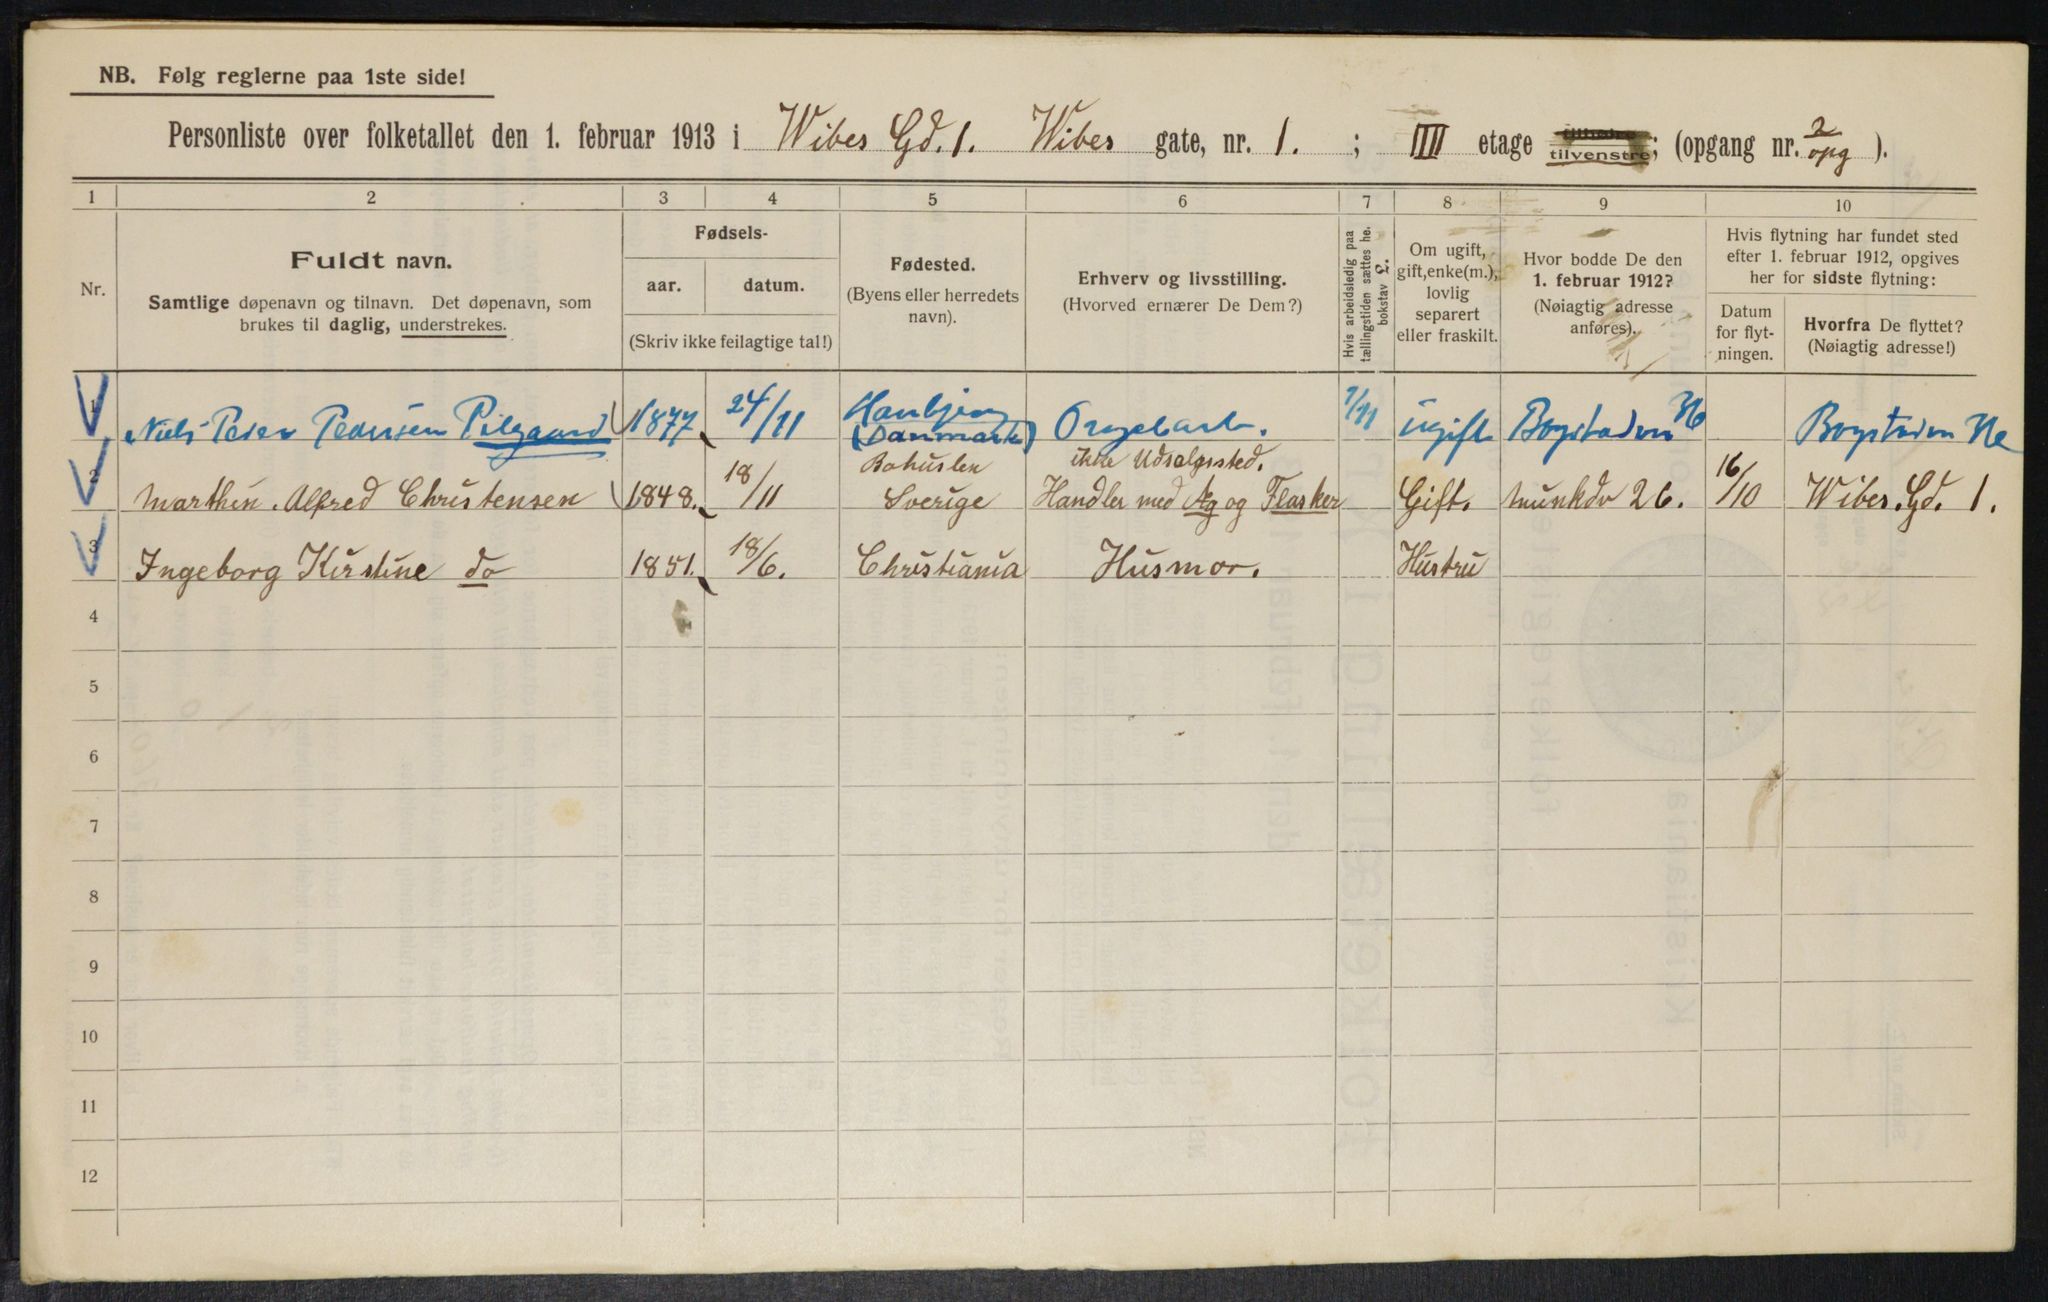 NB. Følg reglerne paa 1ste side!
Personliste over folketallet den 1. februar 1913 i Wibes Gd. 1. Wibes gate, nr. 1. ; IIII etage tilvenstre; (opgang nr. 2 opg ).
1 2 3 4 5 6 7 8 9 10
Nr.
Fuldt navn.
Samtlige døpenavn og tilnavn. Det døpenavn, som
brukes til daglig, understrekes.
Fødsels-
aar. datum.
(Skriv ikke feilagtige tal!)
Fødested.
(Byens eller herredets
navn).
Erhverv og livsstilling.
(Hvorved ernærer De Dem?)
Hvis arbeidsledig paa
tællingstiden sættes he.
bokstav L.
Om ugift,
gift, enke(m.),
lovlig
separert
eller fraskilt.
Hvor bodde De den
1. februar 1912?
(Nøiagtig adresse
anføres).
Hvis flytning har fundet sted
efter 1. februar 1912, opgives
her for sidste flytning:
Datum
for flyt-
ningen.
Hvorfra De flyttet?
(Nøiagtig adresse!)
1 Niels Peder Pedersen Pilgaard 1877 24/11 (Danmark) ugift
2 Marthin. Alfred Christensen 1848. 18/11 Bohuslen Sverige ikke Udsalgssted. Handler med Æg og Flasker Gift. Munkdv 26. 16/10 Wibes. Gd. 1.
3 Ingeborg Kirstine do 1851. 18/6. Christiania Husmor. Hustru
4
5
6
7
8
9
10
11
12